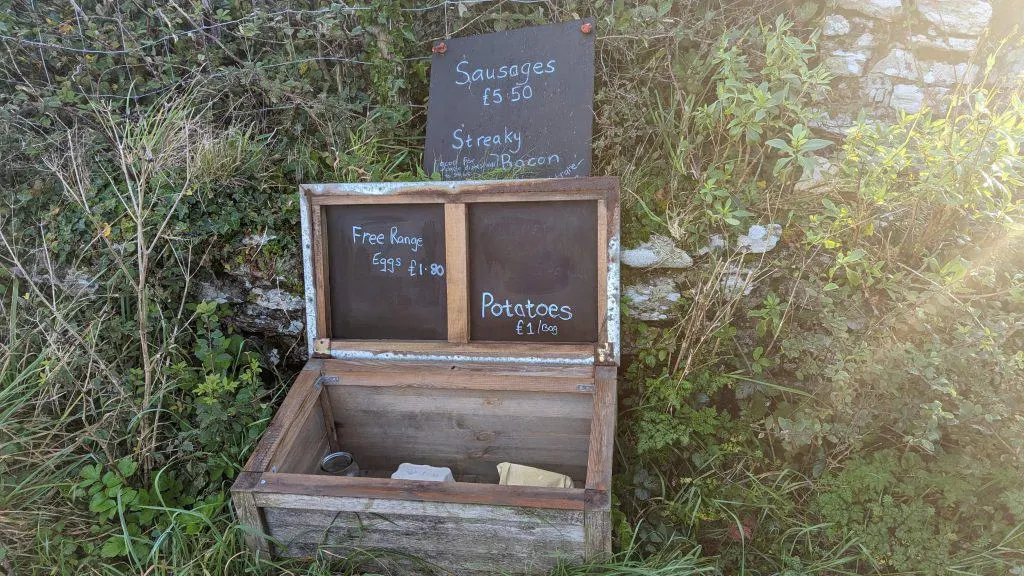 Sausages
£5.50
Streaky
Bacon
Free Range
Eggs £1.80
Potatoes
£1/Bag